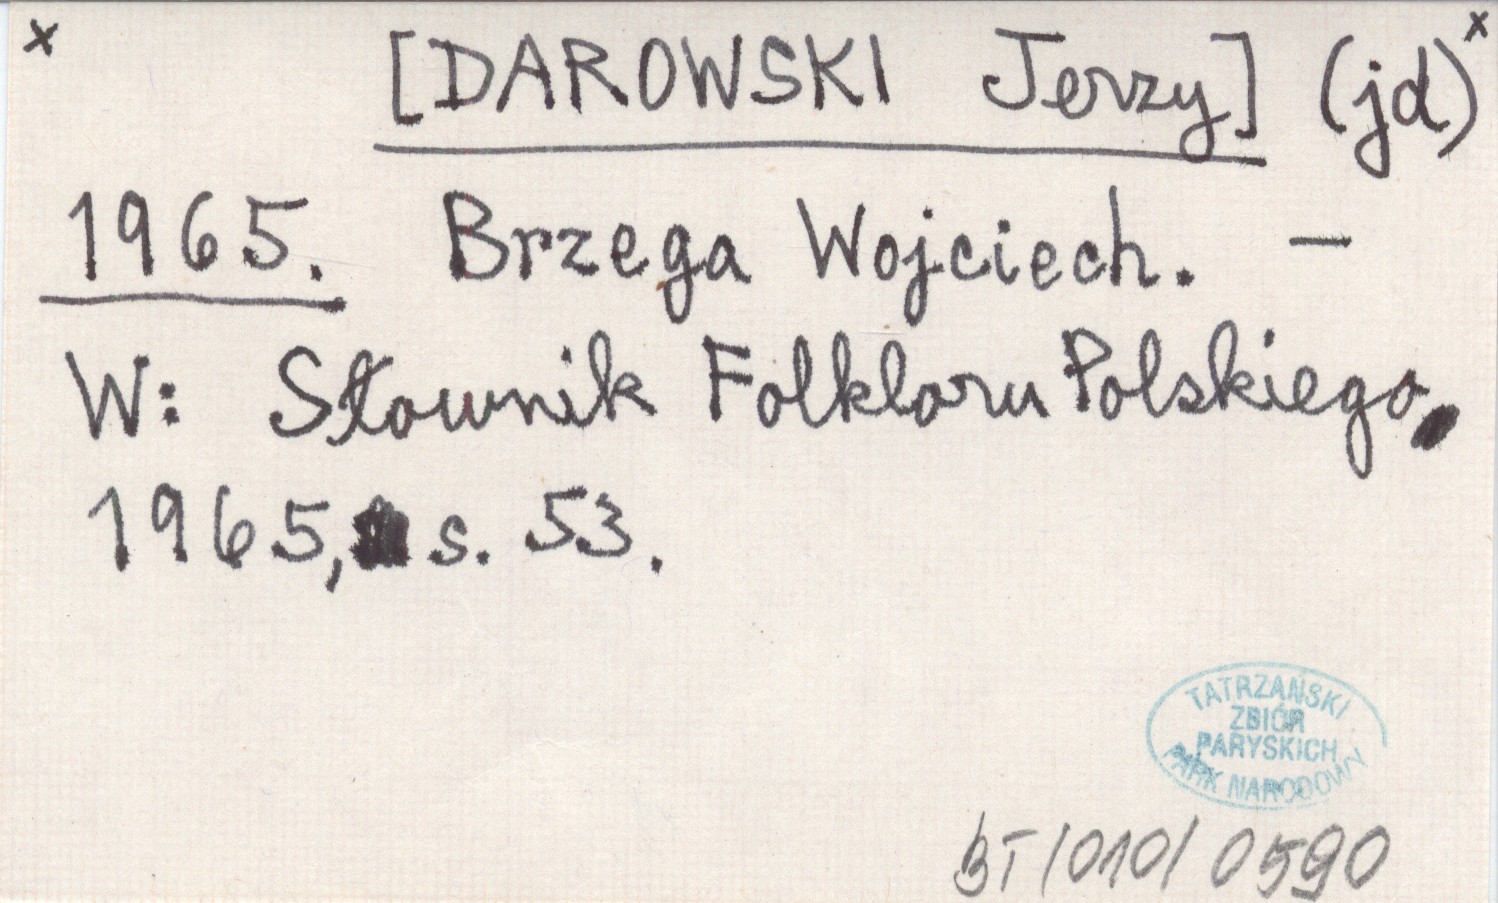 x [DAROWSKI Jerzy] (jd) x
1965. Brzega Wojciech. —
W: Słownik Folkloru Polskiego,
1965, s. 53.
TATRZAŃSKI
ZBIÓR
PARYSKICH
PARK NARODOWY
BT/010/0590